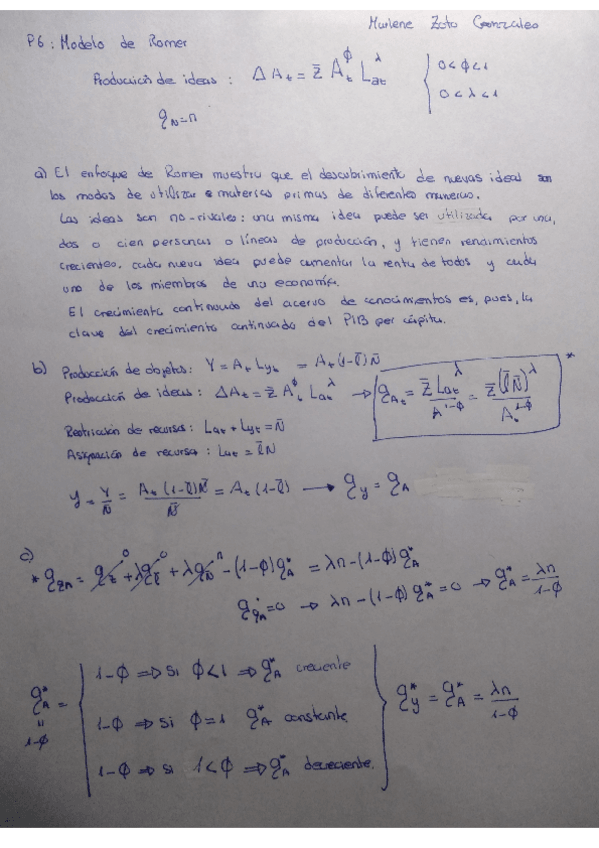 Marlene Zoto Gonzales
P6: Modelo de Romer
Producción de ideas : ΔAt = z̄ At^ϕ Lat^λ { 0<ϕ<1
0<λ<1
g_N = n
a) El enfoque de Romer muestra que el descubrimiento de nuevas ideas son
los modos de utilizar materias primas de diferentes maneras.
Las ideas son no-rivales: una misma idea puede ser utilizada por una,
dos o cien personas o líneas de producción, y tienen rendimientos
crecientes. cada nueva idea puede aumentar la renta de todos y cada
uno de los miembros de una economía.
El crecimiento continuado del acervo de conocimientos es, pues, la
clave del crecimiento continuado del PIB per cápita.
b) Producción de objetos: Y = At Lyt = At (1-l̄) N̄
Producción de ideas: ΔAt = z̄ At^ϕ Lat^λ → g_At = z̄ Lat^λ / A^1-ϕ = z̄ (l̄ N̄)^λ / At^1-ϕ *
Restricción de recursos: Lat + Lyt = N̄
Asignación de recursos : Lat = l̄ N
y = Y/N̄ = At (1-l̄) N̄ / N̄ = At (1-l̄) → g_y = g_A
c)
* g_gA = g_z̄ 0 + λ g_l̄ 0 + λ g_N̄ n - (1-ϕ) g_A* = λn - (1-ϕ) g_A*
g_gA* = 0 → λn - (1-ϕ) g_A* = 0 → g_A* = λn / 1-ϕ
g_A* = { 1-ϕ ⇒ Si ϕ<1 ⇒ g_A* creciente
1-ϕ ⇒ si ϕ=1 g_A* constante } g_y* = g_A* = λn / 1-ϕ
1-ϕ ⇒ si 1<ϕ ⇒ g_A* decreciente.
" 1-ϕ